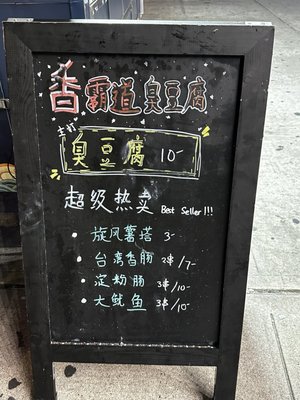 香霸道臭豆腐
主打
臭豆腐 10-
超级热卖 Best Seller!!!
• 旋风薯塔 3-
• 台湾香肠 2串/7-
• 淀粉肠 3串/10-
• 大鱿鱼 3串/10-